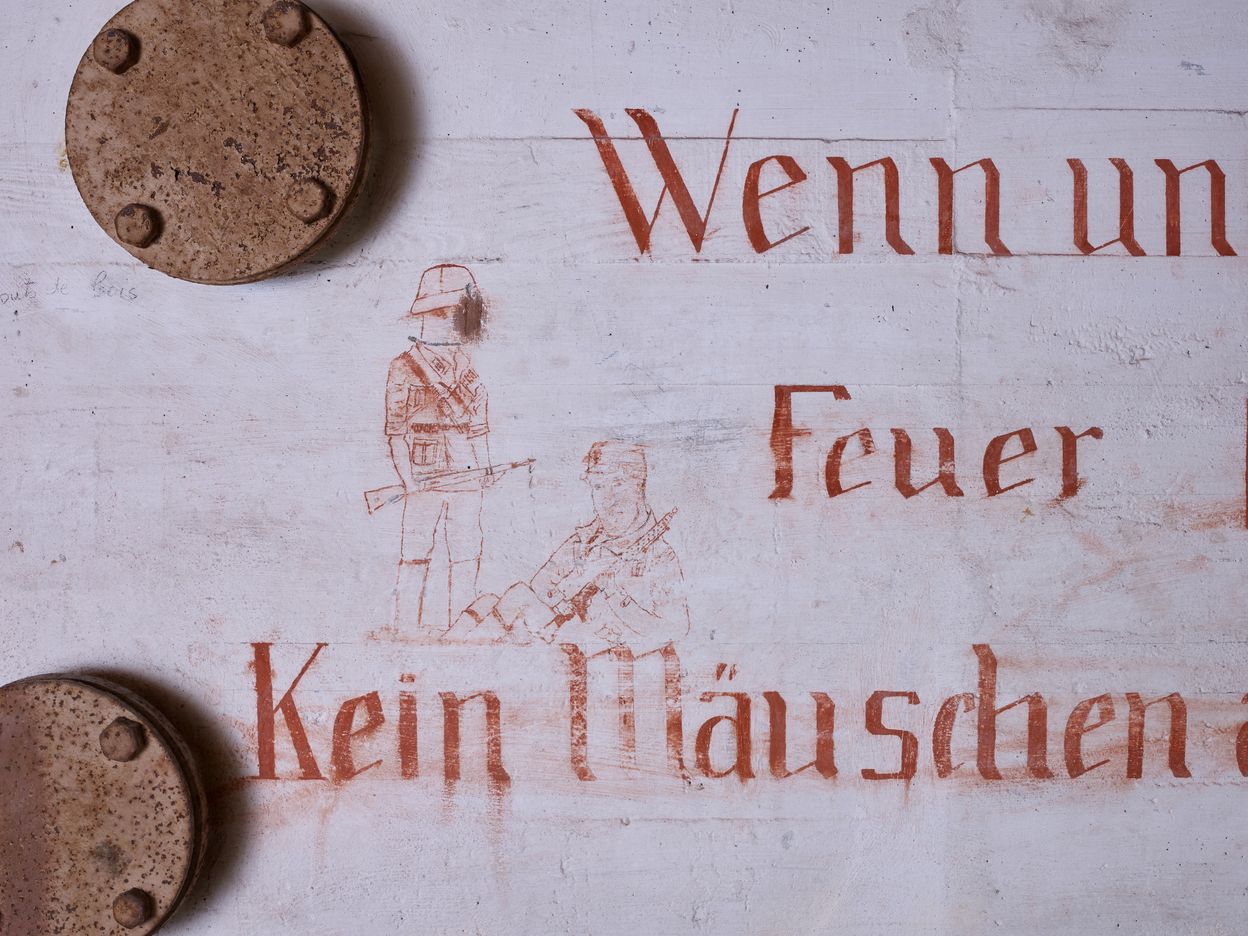 Wenn un
de bois
Feuer
Kein Mäuschen a